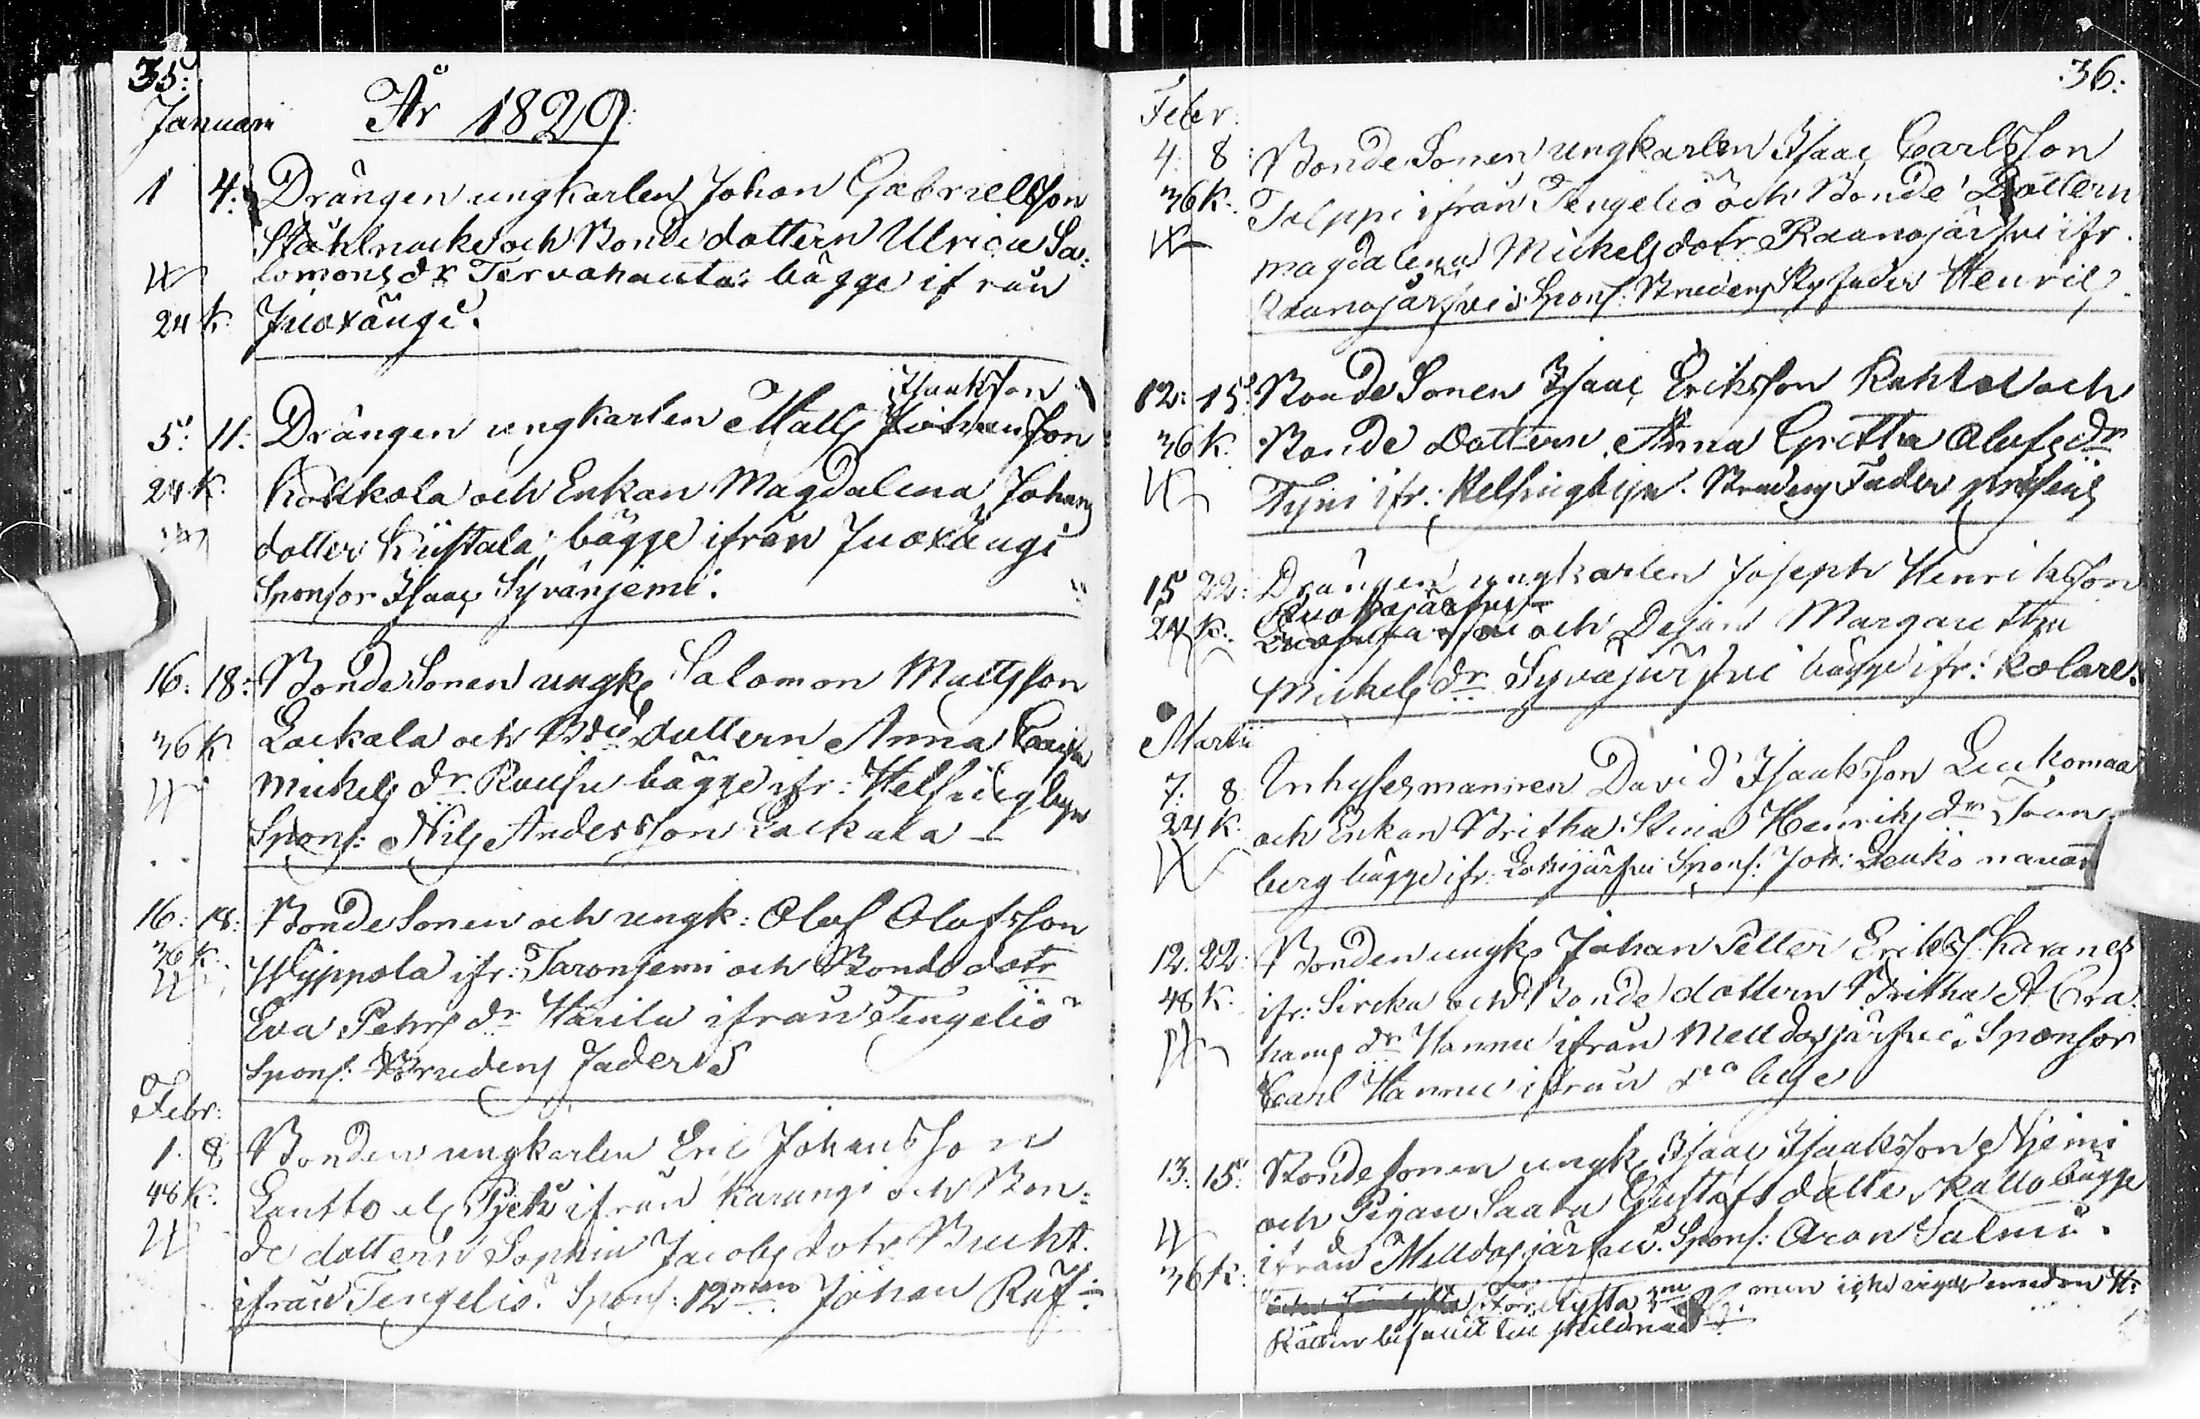 35:
Januari År 1829:
1 4: Drängen ungkarlen Johan Gabrielsson
Ståhlnacke och Bonde dottern Ulrica Sa:
lomons dr Tervahauta: bägge ifrån
24 k. Juoxängi.
Isaaksson
5: 11: Drängen ungkarlen Matts Johansson
24 k. Koukkola och Enkan Magdalena Johans
dotter Kiistala; bägge ifrån Juoxängi
Sponsor Isaac Syvänjemi.
16: 18: Bonde Sonen ungk Salomon Mattsson
36 k. Lackala och Bde dottern Anna Caisa
Mickels dr. Rausu bägge ifr: Helsingbyn
Spons: Nils Andersson Lackala
16: 18: Bonde Sonen och ungk: Olof Olofsson
36 k. Wyppola ifr: Taronjemi och Bonde dotr
Eva Pehrs dr Harila ifrån Tengeliö
Spons: Brudens Fader S
Febr:
1 8 Bonden ungkarlen Eric Johansson
48 k. Lantto ifrån Karungi och Bon:
de dottern Sophia Jacobs dotr Bucht.
ifrån Tengeliö. Spons: 12man Johan Ruf
36:
Febr.
4. 8: Bonde Sonen ungkarlen Isaac Carlsson
36 k. Talppi ifrån Tengeliö och Bonde Dottern
Magdalena Mickels dotr Raanojärfvi ifr.
Raanojärfvi Spons: Brudens Styffader Henric
12: 15: Bonde Sonen Isaac Ericksson Kohtal och
36 k. Bonde Dottern Anna Gretha Olofs dr
Tyni ifr: Helsingbyn. Brudens Fader
15 22: Drängen ungkarlen Joseph Henriksson
Ruokojärfvi
24 k. och Dejan Margaretha
Mickels dr Syväjärfvi bägge ifr: Kolare.
Martii
7. 8 Inhysesmannen David Isaaksson Leukomaa
24 k. och Enkan Britha Stina Henriks dr Fors
berg bägge ifr. Lohijärfvi Spons: Joh: Leuko
12. 22: Bonden ungk Johan Petter Eriks. Kavanes
48 k. ifr: Sircka och Bonde dottern Britha A Bra
hams dr Hannu ifrån Melldosjärfvi. Sponsor
Carl Hannu ifrån do by
13: 15: Bonde sonen ungk Isaac Isaaksson Njemi
och Pigan Saara Gustafs dotter Kallo bägge
36 k: ifrån Melldosjärfvi. Spons: Aron Salmi.
För: Lysta men icke vigde emedan H:
Rätten befallt till skilnad